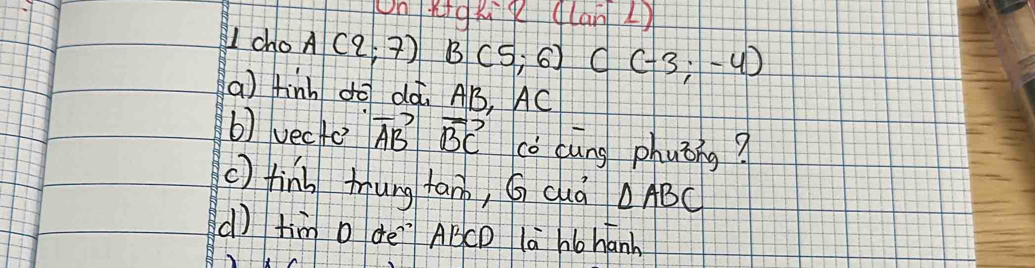 Ôn ktgki 2 (lần 1)
1 cho A (2; 7) B (5; 6) C (-3; -4)
a) tính độ dài AB, AC
b) vectơ AB BC có cùng phương?
c) tính trung tâm, G của Δ ABC
d) tìm D để ABCD là hbhành